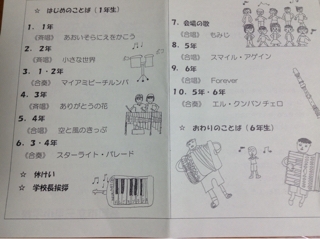 ☆ はじめのことば（1年生）
1. 1年
（斉唱） あおいそらにえをかこう
2. 2年
（斉唱） 小さな世界
3. 1・2年
（合奏） マイアミビーチルンバ
4. 3年
（斉唱） ありがとうの花
5. 4年
（合唱） 空と風のきっぷ
6. 3・4年
（合奏） スターライト・パレード
☆ 休けい
☆ 学校長挨拶
7. 会場の歌
（合唱） もみじ
8. 5年
（合唱） スマイル・アゲイン
9. 6年
（合唱） Forever
10. 5年・6年
（合奏） エル・クンバンチェロ
☆ おわりのことば（6年生）